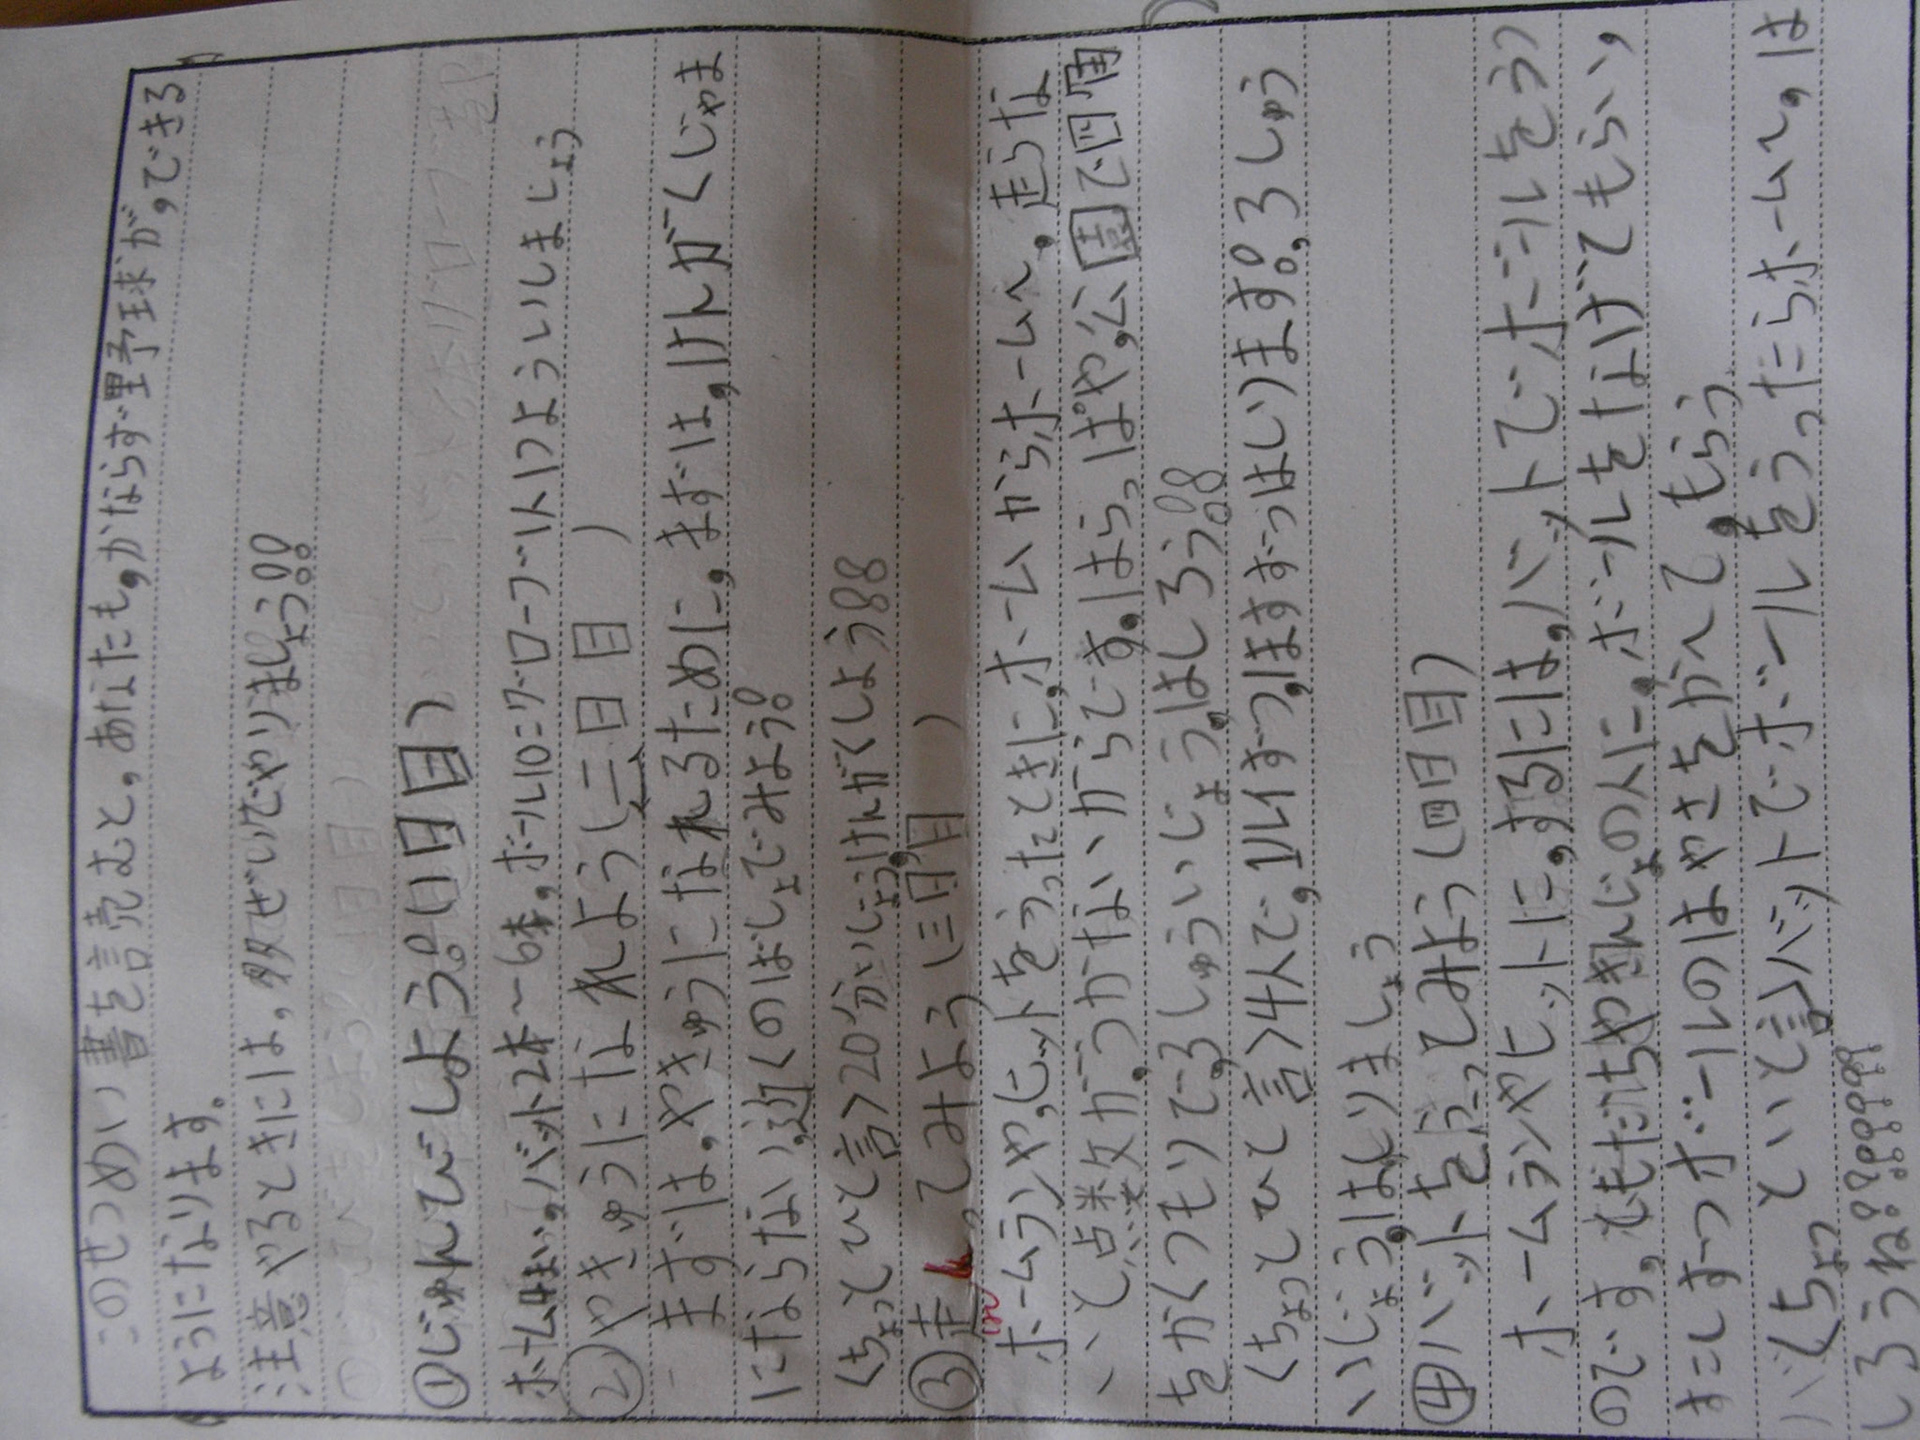 このせつめい書を読むと,あなたも,かならず野球が,できる
ようになります。
注意やるときには,多ぜいでやりましょう!!
①じゅんびしよう。(1日目)
ホーム4まい,バット2本〜6本,ボール10こグローブ1人1つよういしましょう
②やきゅうになれよう(二日目)
まずは,やきゅうになれるために,まずは,けんがくじゃま
にならない,近くのばしょでみよう。
くちょっとひと言>20分いじょう,けんがくしよう!!
③走ってみよう(三日目)
ホームランや,ヒットをうったときに,ホームからホームへ,走らな
いと点数が,つかないからです。はらっぱや,公園で四角
をかくつもりで3しゅういじょう,はしろう!!
くちょっとひと言>4人で,1るいずつ,はすずつはいります。3しゅう
いじょう,はしりましょう
④バットをふってみよう(四日目)
ホームランやヒットに,するには,バットでボールをうつ
のです。ともだちやきんじょの人に,ボールをなげてもらい,
すこしずつボールのはやさをかえて,もらう
くちょっとひと言>バットでボールをうったらホームへ,は
しろうね!!